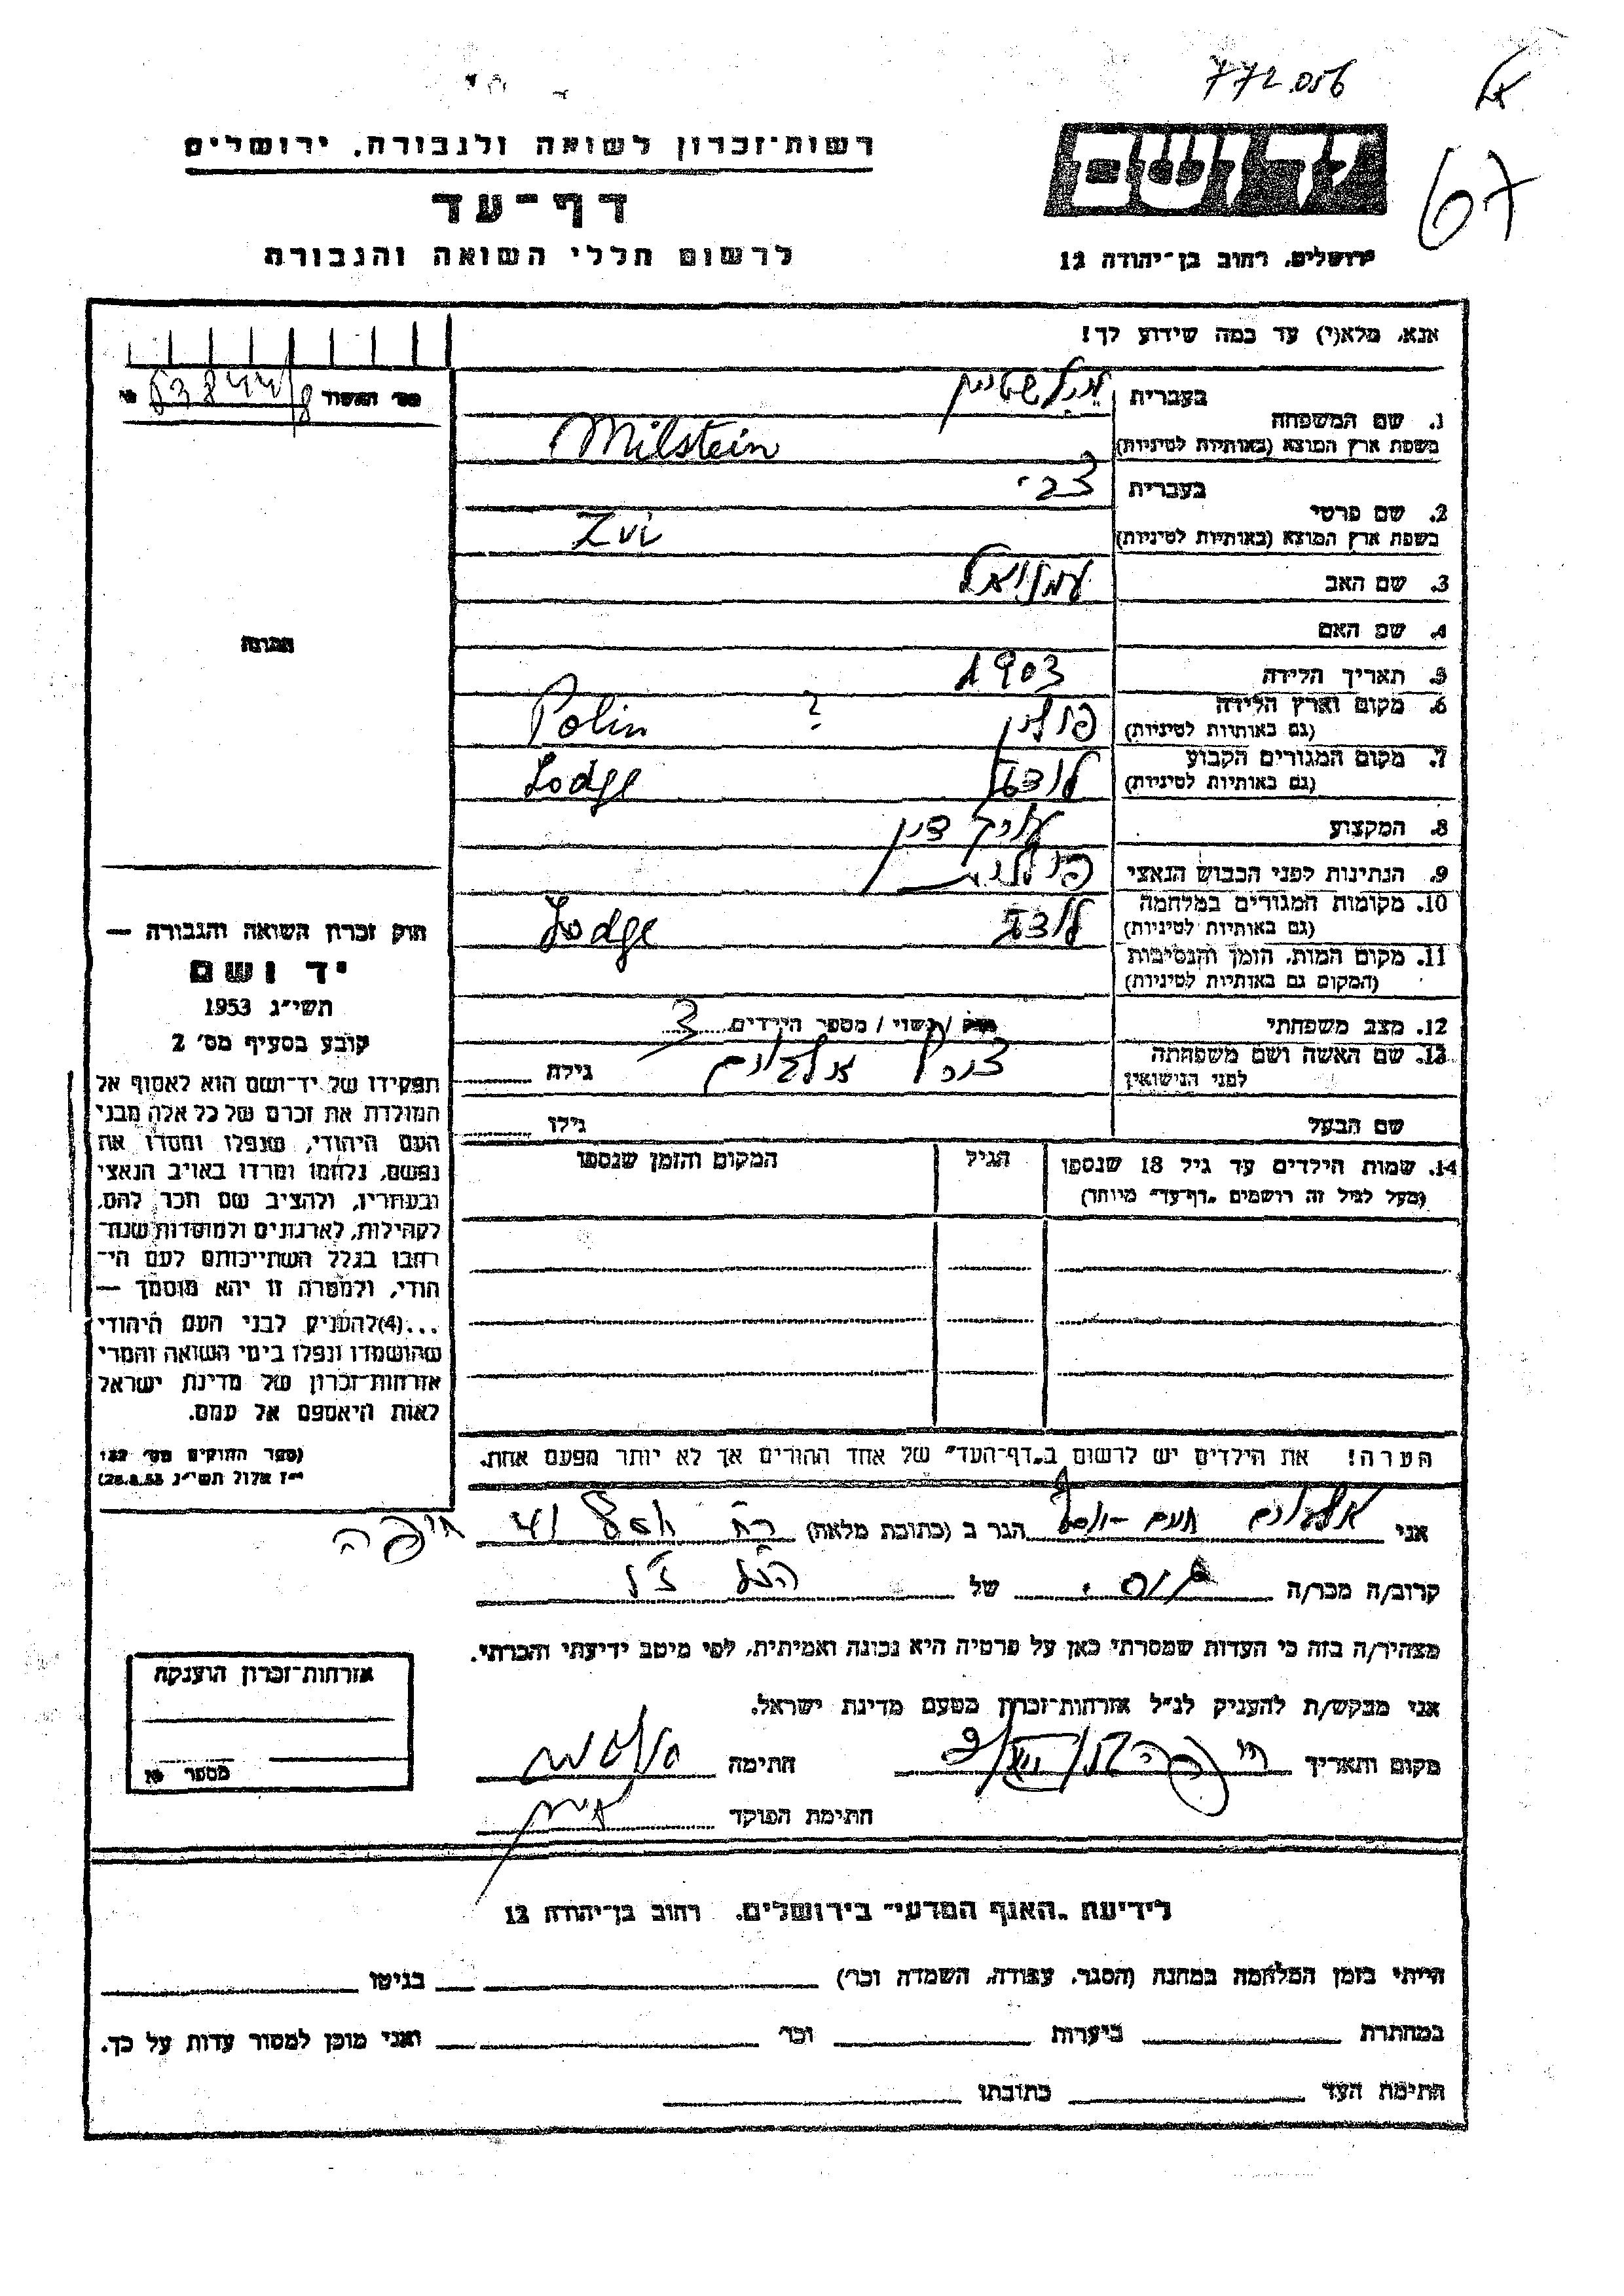 772.056
67
רשות־זכרון לשואה ולגבורה, ירושלים
דף־עד
לרשום חללי השואה והגבורה
יד ושם
ירושלים, רחוב בן־יהודה 12
אנא, מלא(י) עד כמה שידוע לך!
1. שם המשפחה
בעברית מילשטיין
בשפת ארץ המוצא (באותיות לטיניות) Milstein
2. שם פרטי
בעברית צבי
בשפת ארץ המוצא (באותיות לטיניות) Zvi
3. שם האב עמנואל
4. שם האם
5. תאריך הלידה 1903
6. מקום וארץ הלידה
(גם באותיות לטיניות) פולין ? Polin
7. מקום המגורים הקבוע
(גם באותיות לטיניות) לודז Lodge
8. המקצוע עורך דין
9. הנתינות לפני הכבוש הנאצי פולנית
10. מקומות המגורים במלחמה
(גם באותיות לטיניות) לודז Lodge
11. מקום המות, הזמן והנסיבות
(המקום גם באותיות לטיניות)
12. מצב משפחתי רוק / נשוי / מספר הילדים 3
13. שם האשה ושם משפחתה
לפני הנישואין גילה
שם הבעל גילו
14. שמות הילדים עד גיל 18 שנספו
(מעל לגיל זה רושמים "דף־עד" מיוחד)
הגיל
המקום והזמן שנספו
הערה! את הילדים יש לרשום ב"דף־העד" של אחד ההורים אך לא יותר מפעם אחת.
מס' האשור 63844/8 №
תמונה
חוק זכרון השואה והגבורה —
יד ושם
תשי"ג 1953
קובע בסעיף מס' 2
תפקידו של יד־ושם הוא לאסוף אל
המולדת את זכרם של כל אלה מבני
העם היהודי, שנפלו ומסרו את
נפשם, נלחמו ומרדו באויב הנאצי
ובעוזריו, ולהציב שם וזכר להם,
לקהילות, לארגונים ולמוסדות שנח־
רבו בגלל השתייכותם לעם הי־
הודי, ולמטרה זו יהא מוסמך —
...(4)להעניק לבני העם היהודי
שהושמדו ונפלו בימי השואה והמרי
אזרחות־זכרון של מדינת ישראל
לאות היאספם אל עמם.
(ספר החוקים מס' 132
י"ז אלול תשי"ג 28.8.53)
אני הגר ב (כתובת מלאה) רח' 41 חיפה
קרוב/ה מכר/ה גיסו של הנ"ל ז"ל
מצהיר/ה בזה כי העדות שמסרתי כאן על פרטיה היא נכונה ואמיתית, לפי מיטב ידיעתי והכרתי.
אני מבקש/ת להעניק לנ"ל אזרחות־זכרון מטעם מדינת ישראל.
מקום ותאריך חתימה
חתימת הפוקד
אזרחות־זכרון הוענקה
מספר №
לידיעת "האגף המדעי" בירושלים. רחוב בן־יהודה 12
הייתי בזמן המלחמה במחנה (הסגר, עבודה, השמדה וכו') בגיטו
במחתרת ביערות וכו' ואני מוכן למסור עדות על כך.
חתימת העד כתובתו